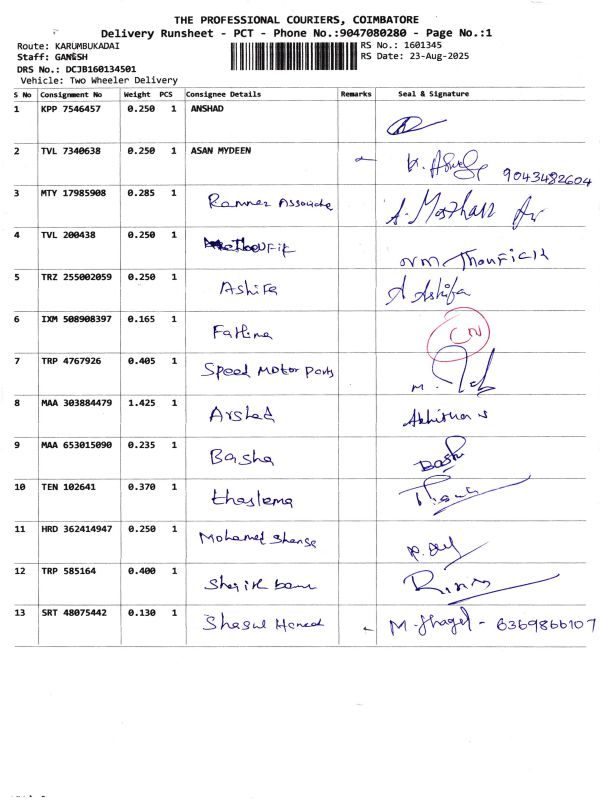 THE PROFESSIONAL COURIERS, COIMBATORE
Delivery Runsheet - PCT - Phone No.:9047080280 - Page No.:1
Route: KARUMBUKADAI RS No.: 1601345
Staff: GANESH RS Date: 23-Aug-2025
DRS No.: DCJB160134501
Vehicle: Two Wheeler Delivery
S No Consignment No Weight PCS Consignee Details Remarks Seal & Signature
1 KPP 7546457 0.250 1 ANSHAD
2 TVL 7340638 0.250 1 ASAN MYDEEN 9043482604
3 MTY 17985908 0.285 1 A. Mazhar
4 TVL 200438 0.250 1 Thoufik
5 TRZ 255002059 0.250 1 Ashifa A Ashifa
6 IXM 508908397 0.165 1 Fathima CN
7 TRP 4767926 0.405 1 Speed Motor Parts
8 MAA 303884479 1.425 1 Arshad
9 MAA 653015090 0.235 1 Basha
10 TEN 102641 0.370 1 thaslema
11 HRD 362414947 0.250 1 Mohamed
12 TRP 585164 0.400 1
13 SRT 48075442 0.130 1 Shagul Hameed M. Shagul - 6369866107